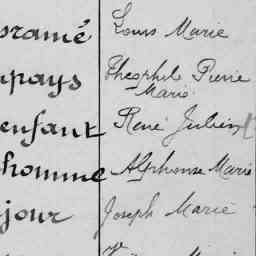 oramé Louis Marie
pays Théophile Pierre
Marie
enfant René Julien
homme Alphonse Marie
jour Joseph Marie